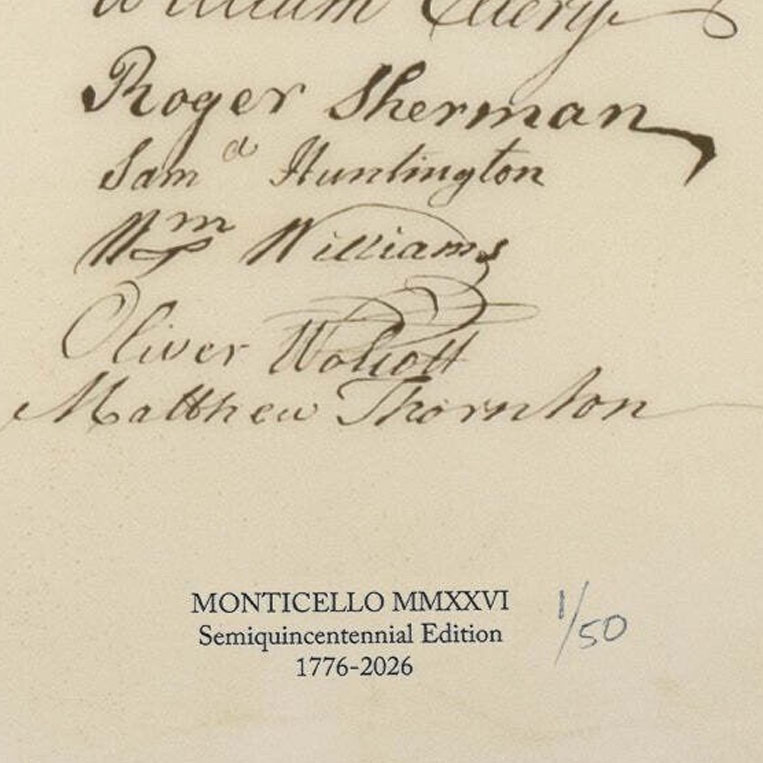 William Ellery
Roger Sherman
Sam^el Huntington
W^m Williams
Oliver Wolcott
Matthew Thornton
MONTICELLO MMXXVI 1/50
Semiquincentennial Edition
1776-2026